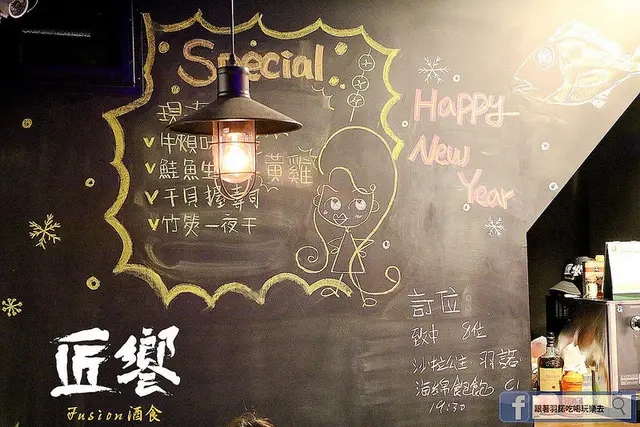 Special
現
牛頰
鮭魚生 黃雞
干貝 壽司
竹筴一夜干
Happy
New
Year
訂位
致中 8位
沙拉公主 羽諾
海綿飽飽 C1
19:30
匠饗
Fusion酒食
跟著羽諾吃喝玩樂去